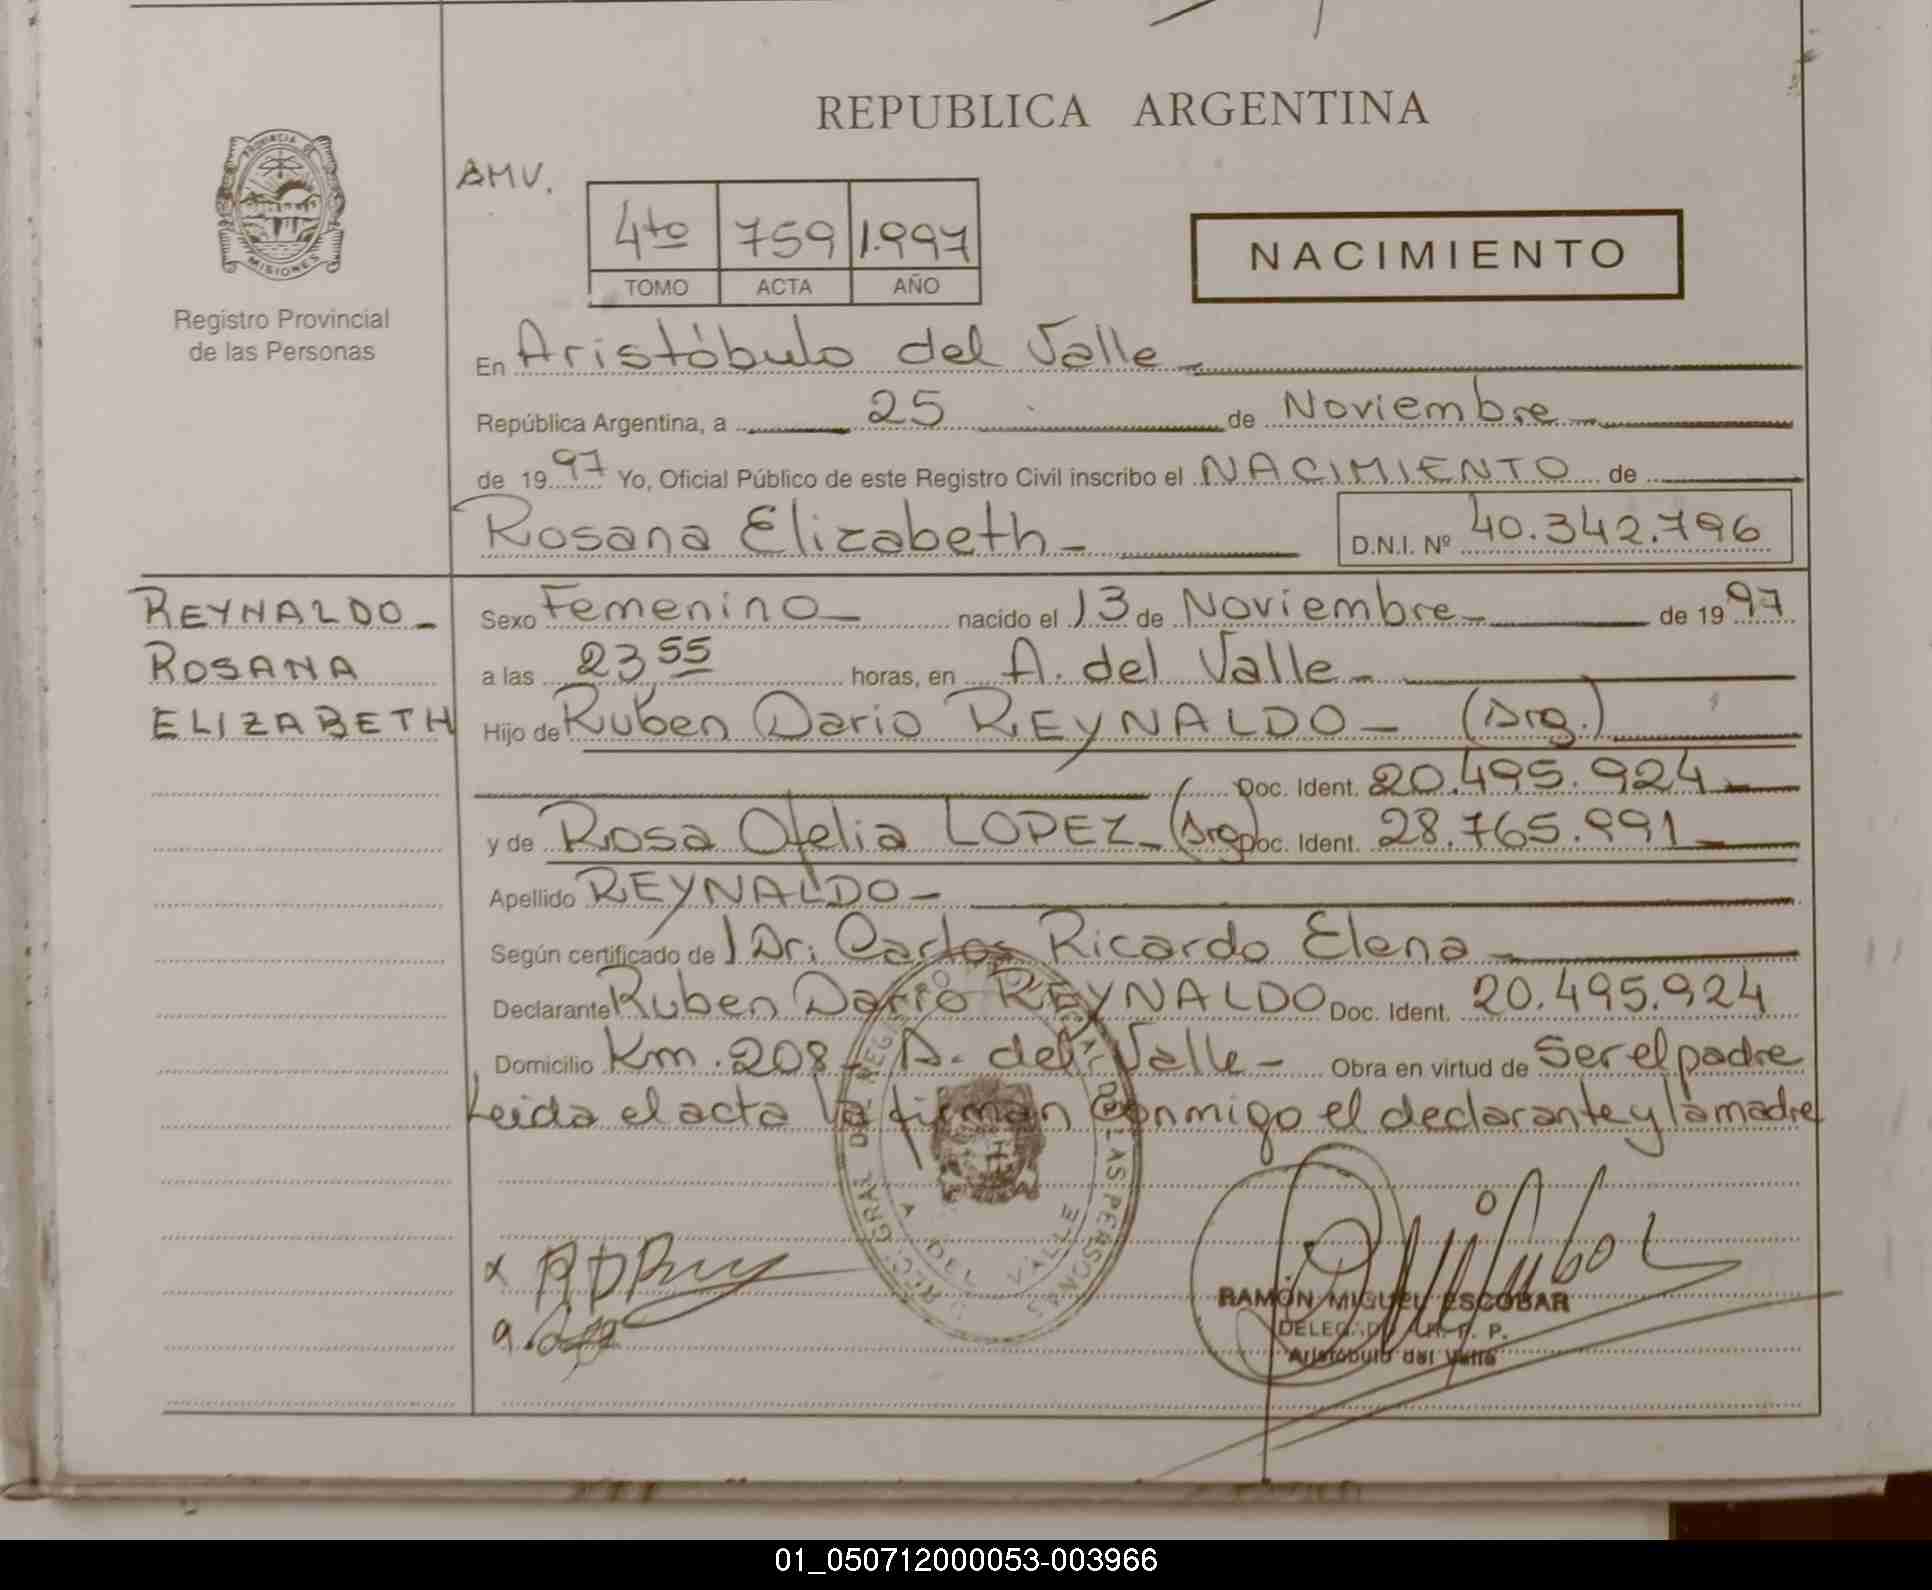 REPUBLICA ARGENTINA
PROVINCIA DE
MISIONES
Registro Provincial
de las Personas
AMV.
4to 759 1.997
TOMO ACTA AÑO
NACIMIENTO
En Aristóbulo del Valle
República Argentina, a 25 de Noviembre
de 1997 Yo, Oficial Público de este Registro Civil inscribo el NACIMIENTO de
Rosana Elizabeth - D.N.I. Nº 40.342.796
REYNALDO -
ROSANA
ELIZABETH
Sexo Femenino - nacido el 13 de Noviembre - de 1997
a las 23 55 horas, en A. del Valle -
Hijo de Ruben Dario REYNALDO - (Arg.)
Doc. Ident. 20.495.924
y de Rosa Ofelia LOPEZ - (Arg) Doc. Ident. 28.765.991
Apellido REYNALDO -
Según certificado de l Dr: Carlos Ricardo Elena
Declarante Ruben Dario REYNALDO Doc. Ident. 20.495.924
Domicilio Km. 208 - A. del Valle - Obra en virtud de Ser el padre
Leida el acta la firman conmigo el declarante y la madre
GRAL DEL REGIS PROVINCIAL DE LAS PERSONAS
A DEL VALLE
RAMÓN MIGUEL ESCOBAR
DELEGADO R. P. P.
Aristóbulo del Valle
01_050712000053-003966